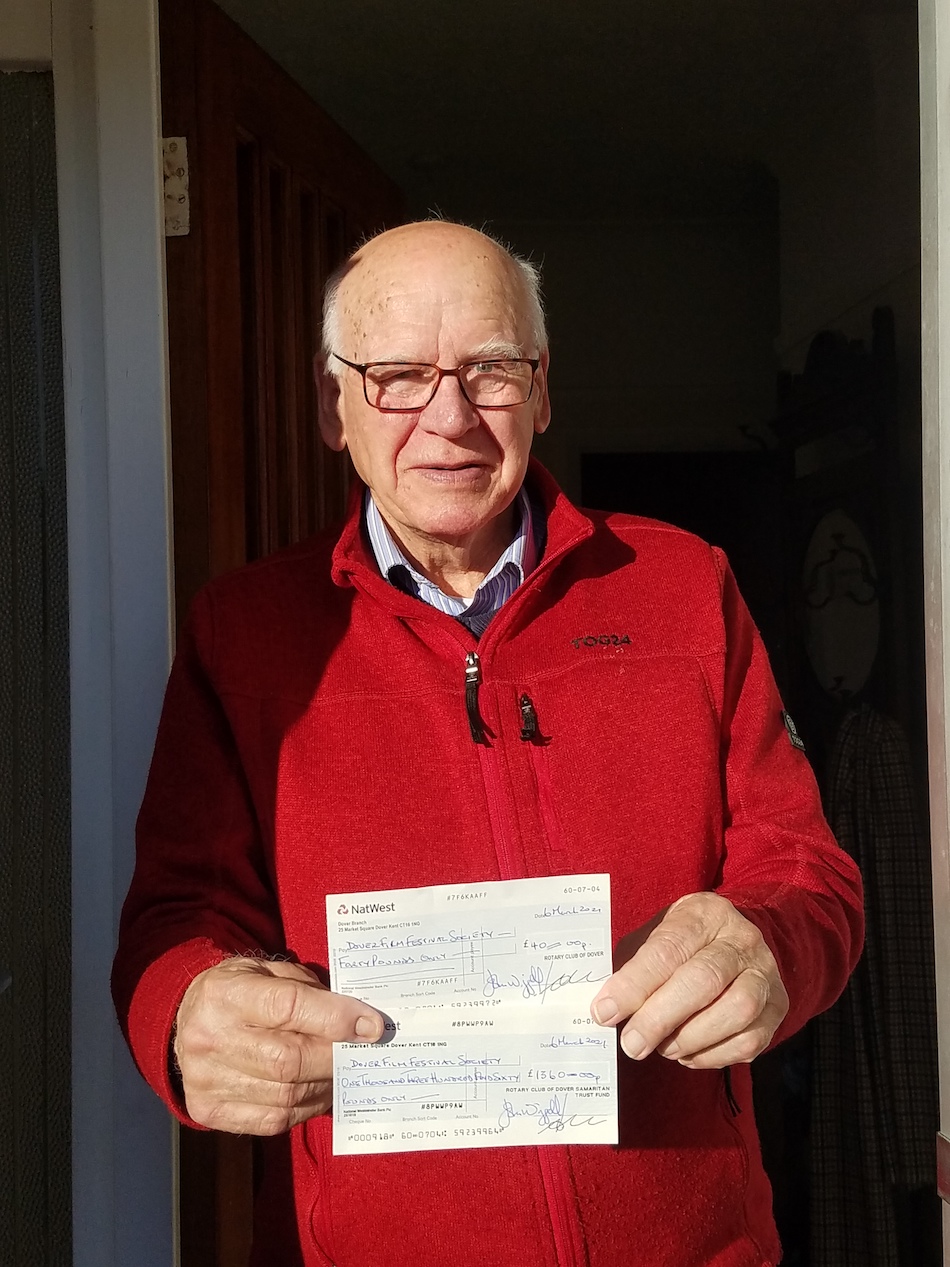 TOG24
#7F6KAAFF
60-07-04
NatWest
Dover Branch
25 Market Square Dover Kent CT16 1NG
Date 6 March 2021
Pay
DOVER FILM FESTIVAL SOCIETY
FORTY POUNDS ONLY
£40-00p
ROTARY CLUB OF DOVER
#7F6KAAFF
Branch Sort Code
Account No.
#8PWWP9AW
60-07
25 Market Square Dover Kent CT16 1NG
Date 6 March 2021
DOVER FILM FESTIVAL SOCIETY
ONE THOUSAND THREE HUNDRED AND SIXTY
£1360-00p
POUNDS ONLY
ROTARY CLUB OF DOVER SAMARITAN
TRUST FUND
#8PWWP9AW
Cheque No.
Branch Sort Code
Account No.